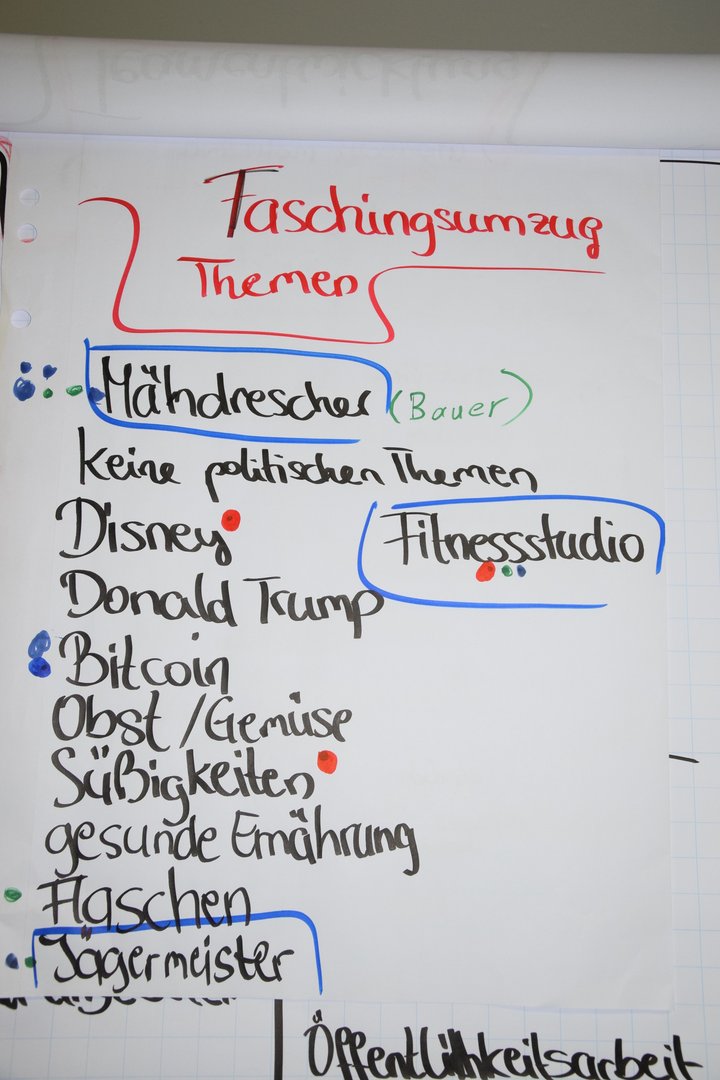 Faschingsumzug
Themen
Mähdrescher (Bauer)
keine politischen Themen
Disney
Fitnessstudio
Donald Trump
Bitcoin
Obst / Gemüse
Süßigkeiten
gesunde Ernährung
Flaschen
Jägermeister
Öffentlichkeitsarbeit